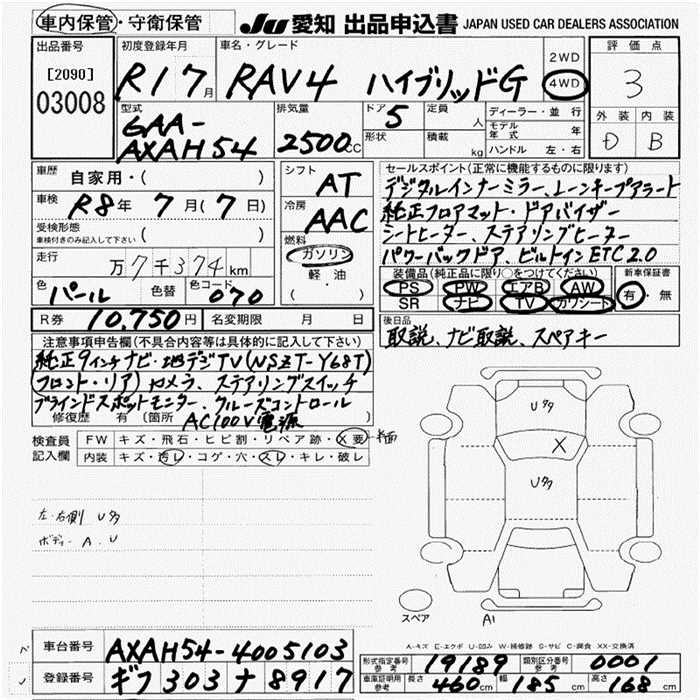 車内保管・守衛保管 JU 愛知 出品申込書 JAPAN USED CAR DEALERS ASSOCIATION
出品番号 [2090] 03008
初度登録年月 R1 7月
車名・グレード RAV4 ハイブリッドG
2WD 4WD
評価点 3
外装 D 内装 B
型式 6AA-AXAH54
排気量 2500cc
ドア 5 形状
定員 人 積載 kg
ディーラー・並行
モデル年式 年
ハンドル 左・右
車歴 自家用・( )
車検 R8年 7月(7日)
受検形態 車検付きのみ記入して下さい ( )
走行 万7千374km
色 パール 色替 色コード 070
シフト AT
冷房 AAC
燃料 ガソリン 軽油 ( )
セールスポイント(正常に機能するものに限ります)
デジタルインナーミラー、レーンキープアラート
純正フロアマット・ドアバイザー
シートヒーター、ステアリングヒーター
パワーバックドア、ビルトインETC2.0
装備品(純正品に限り○をつけてください)
PS PW エアB AW
SR ナビ TV カワシート
新車保証書 有・無
R券 10,750円 名変期限 月 日
後日品
取説、ナビ取説、スペアキー
注意事項申告欄(不具合内容等は具体的に記入して下さい)
純正9インチナビ・地デジTV(NSZT-Y68T)
(フロント・リア)カメラ、ステアリングスイッチ
ブラインドスポットモニター、クルーズコントロール
AC100V電源
修復歴 有(箇所
検査員記入欄
FW キズ・飛石・ヒビ割・リペア跡・X要
内装 キズ・汚レ・コゲ・穴・スレ・キレ・破レ
左・右側 Uタ
ボディー A.U
Uタ
X
Uタ
スペア
A1
A-キズ E-エクボ U-凹み W-補修跡 S-サビ C-腐食 XX-交換済
車台番号 AXAH54-4005103
登録番号 ギフ 303 ナ 8917
形式指定番号 参考 19189 類別区分番号 参考 0001
車庫証明用 参考 長さ 460cm 幅 185cm 高さ 168cm